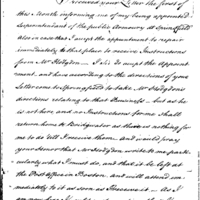 I received your Letter the first of
this Month informing me of my being appointed
Superintendant of the public Armoury at Springfield
also in case that I accept the appointment to repair
immediately to that place to receive Instructions
from Mr Hodgdon. I do accept the appoint
ment, and have according to the directions of your
Letter come to Springfield to take Mr Hodgdon's
directions relating to that Business — but as he
is not here and no Instructions for me I shall
return home to Bridgwater as there is nothing for
me to do till I receive them, and would pray
your Honor that Mr Hodgdon write to me partic
ularly what I must do, and that it be left at
the Post Office in Boston and will attend im
mediately to it as soon as I receive it — As I